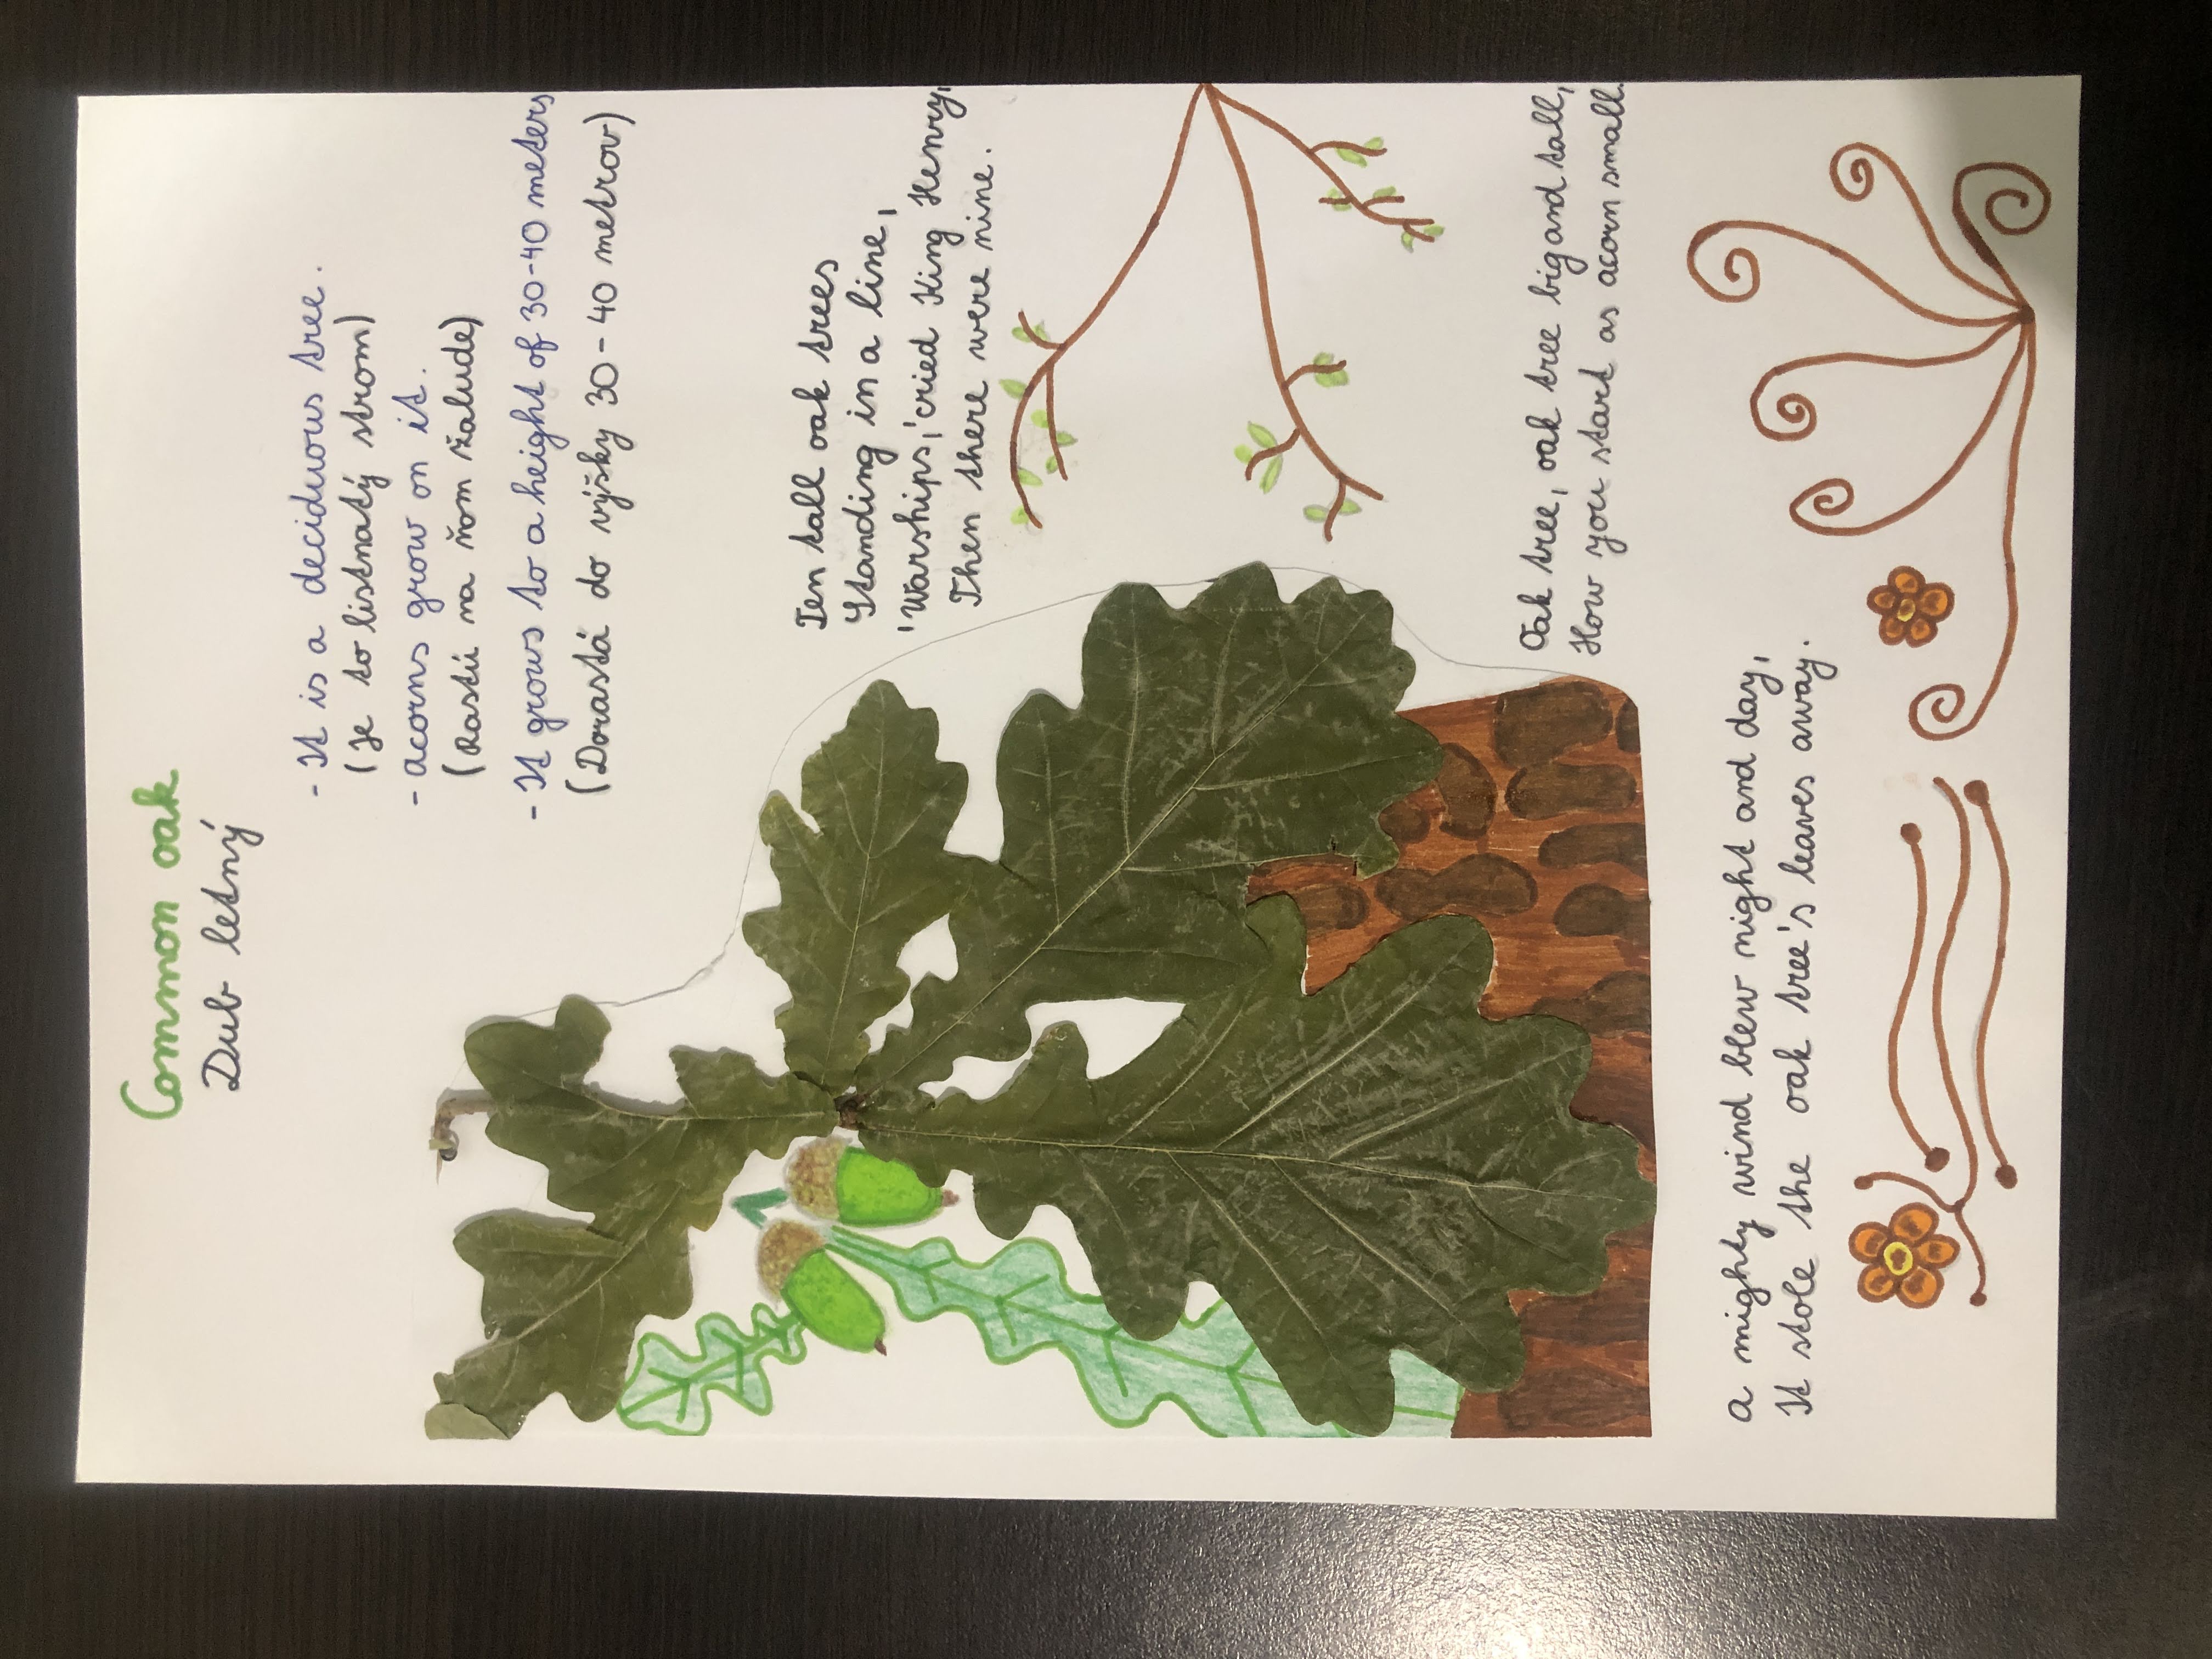 Common oak
Dub letný
- It is a deciduous tree.
(Je to listnatý strom)
- acorns grow on it.
(Rastú na ňom žalude)
- It grows to a height of 30-40 meters
(Dorastá do výšky 30-40 metrov)
Ten tall oak trees
Standing in a line,
'Warships,' cried King Henry,
Then there were nine.
Oak tree, oak tree big and tall,
How you start as acorn small.
a mighty wind blew night and day,
It stole the oak tree's leaves away.